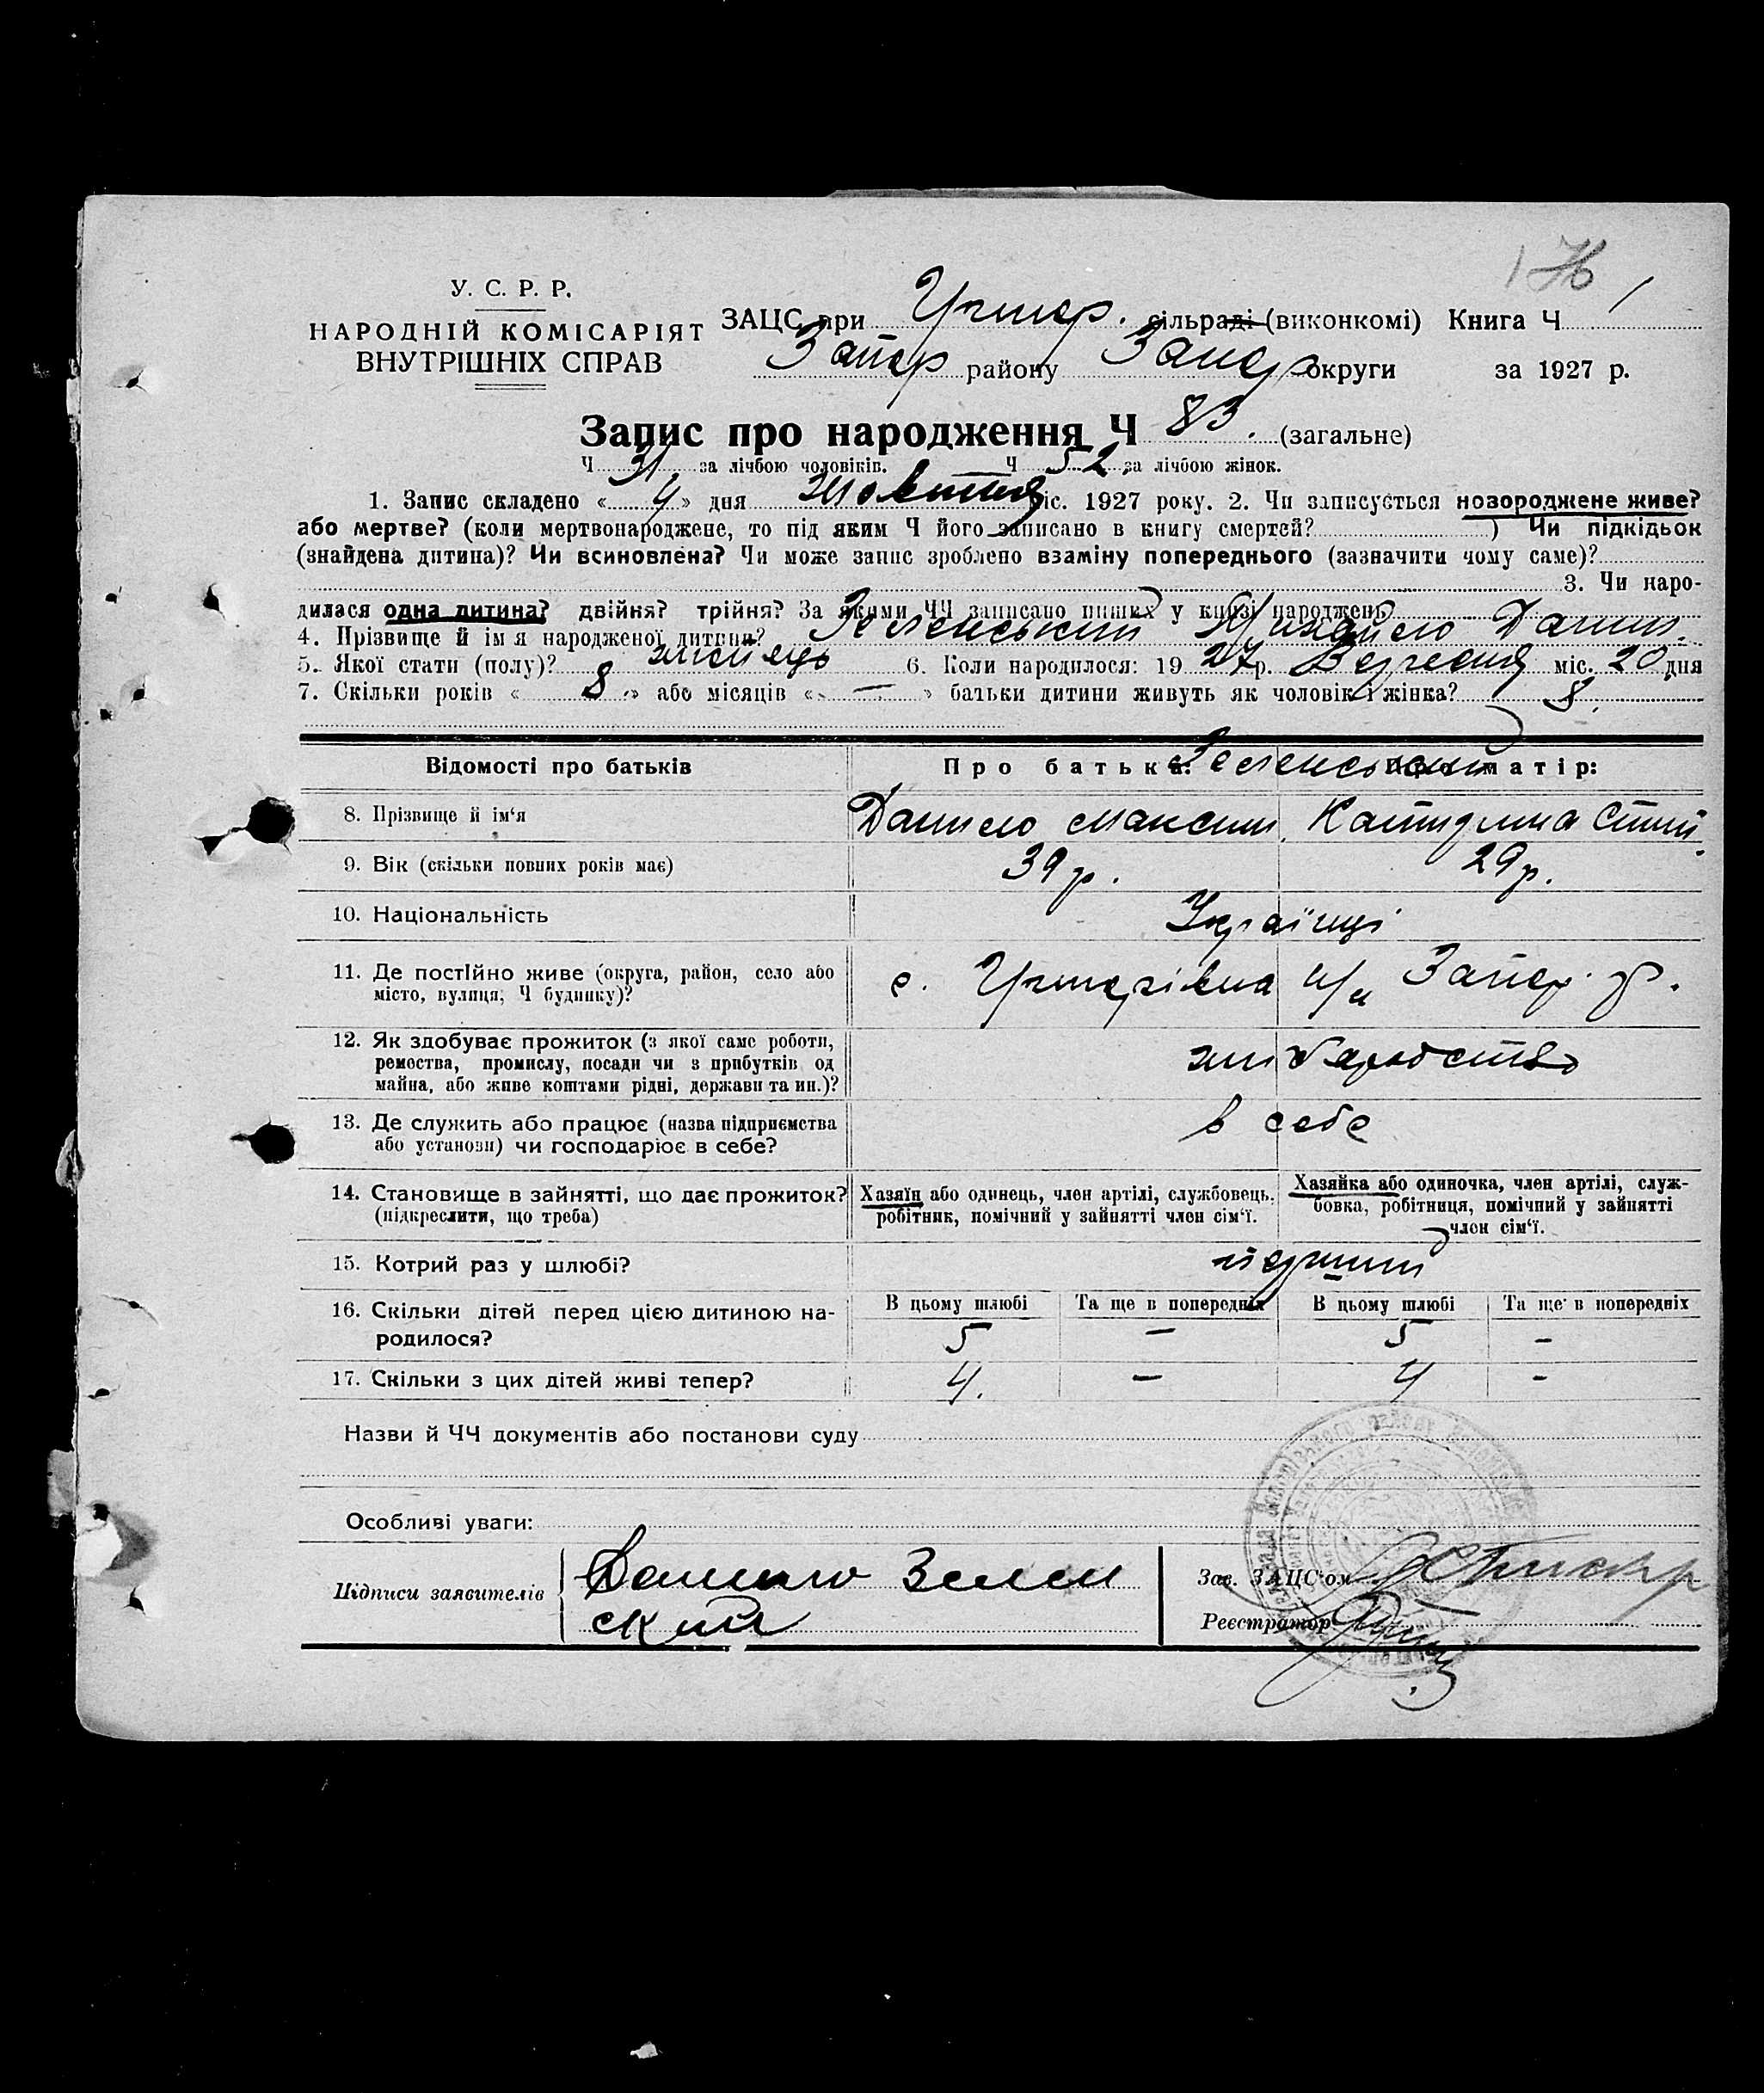 1
У. С. Р. Р.
НАРОДНІЙ КОМІСАРІЯТ
ВНУТРІШНІХ СПРАВ
ЗАЦС при сільраді (виконкомі) Книга Ч 1
Запор району Запор округи за 1927 р.
Запис про народження Ч 83. (загальне)
Ч 31 за лічбою чоловіків. Ч 52 за лічбою жінок.
1. Запис складено «4» дня Жовтня міс. 1927 року. 2. Чи записується новороджене живе?
або мертве? (коли мертвонароджене, то під яким Ч його записано в книгу смертей? ) Чи підкідьок
(знайдена дитина)? Чи всиновлена? Чи може запис зроблено взаміну попереднього (зазначити чому саме)?
3. Чи наро-
дилася одна дитина? двійня? трійня? За якими ЧЧ записано инших у книзі народжень
4. Прізвище й імя народженої дитини? Зеленський Михайло Данил.
5. Якої стати (полу)? 6. Коли народилося: 1927 р. Вересня міс. 20 дня
7. Скільки років «8» або місяців «—» батьки дитини живуть як чоловік і жінка? 8.
Відомості про батьків Про батька: Про матір:
Зеленський
8. Прізвище й ім‘я Данило Максим. Катирина
9. Вік (скільки повних років має) 39 р. 29 р.
10. Національність Українці
11. Де постійно живе (округа, район, село або
місто, вулиця, Ч будинку)? с. Запор. р.
12. Як здобуває прожиток (з якої саме роботи,
ремества, промислу, посади чи з прибутків од
майна, або живе коштами рідні, держави та ин.)? хліборобство
13. Де служить або працює (назва підприємства
або установи) чи господарює в себе? в себе
14. Становище в зайнятті, що дає прожиток?
(підкреслити, що треба)
Хазяїн або одинець, член артілі, службовець,
робітник, помічний у зайнятті член сім‘ї.
Хазяйка або одиночка, член артілі, служ-
бовка, робітниця, помічний у зайнятті
член сім‘ї.
15. Котрий раз у шлюбі? перший
16. Скільки дітей перед цією дитиною на-
родилося?
В цьому шлюбі Та ще в попередніх В цьому шлюбі Та ще в попередніх
5 — 5 —
17. Скільки з цих дітей живі тепер? 4. — 4 —
Назви й ЧЧ документів або постанови суду
Особливі уваги:
Підписи заявителів Данило Зелен
ский
Зав. ЗАЦС‘ом
Реєстратор